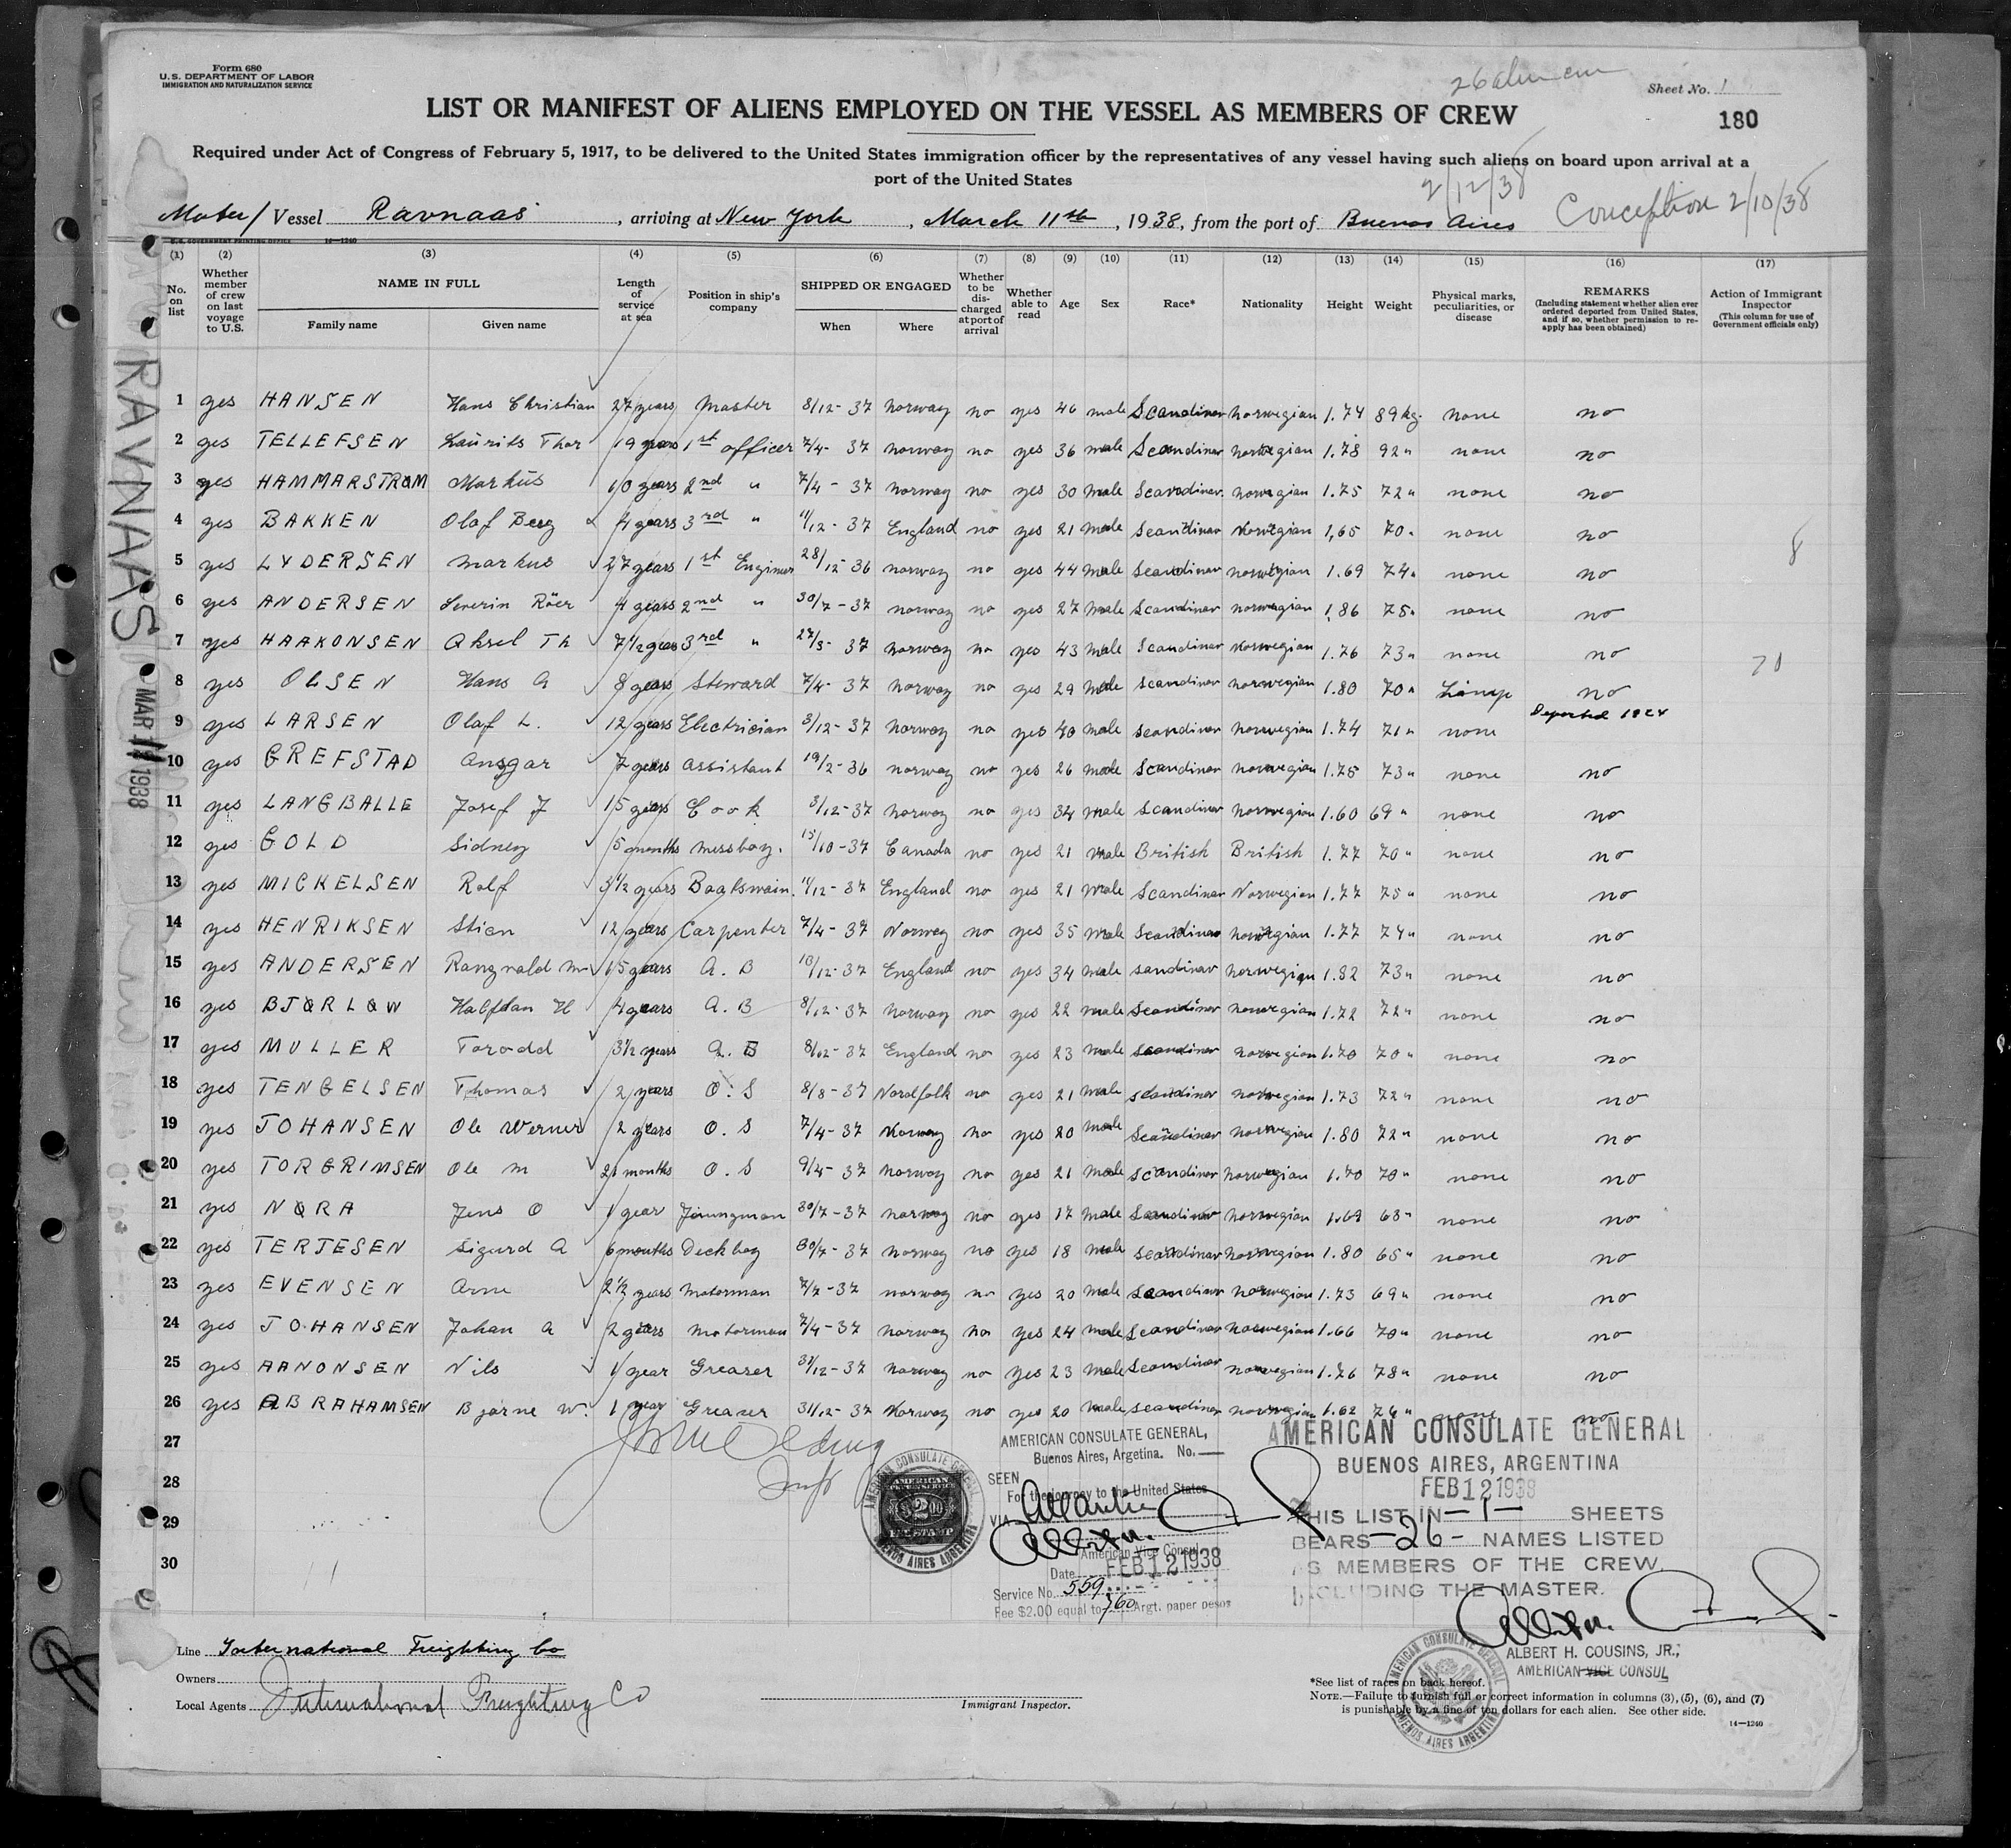 Form 680
U.S. DEPARTMENT OF LABOR
IMMIGRATION AND NATURALIZATION SERVICE
Sheet No. 1
LIST OR MANIFEST OF ALIENS EMPLOYED ON THE VESSEL AS MEMBERS OF CREW
180
Required under Act of Congress of February 5, 1917, to be delivered to the United States immigration officer by the representatives of any vessel having such aliens on board upon arrival at a
port of the United States
2/12/38
Vessel Ravnaas, arriving at New York, March 11th, 1938, from the port of Buenos Aires
Conception 2/10/38
U. S. GOVERNMENT PRINTING OFFICE 14—1240
(1) (2) (3) (4) (5) (6) (7) (8) (9) (10) (11) (12) (13) (14) (15) (16) (17)
No. on list
Whether member of crew on last voyage to U.S.
NAME IN FULL
Family name
Given name
Length of service at sea
Position in ship's company
SHIPPED OR ENGAGED
When
Where
Whether to be discharged at port of arrival
Whether able to read
Age
Sex
Race*
Nationality
Height
Weight
Physical marks, peculiarities, or disease
REMARKS
(Including statement whether alien ever ordered deported from United States, and if so, whether permission to reapply has been obtained)
Action of Immigrant Inspector
(This column for use of Government officials only)
1 yes HANSEN Hans Christian 27 years Master 8/12-37 Norway no yes 46 male Scandinav Norwegian 1.74 89 kg. none no
2 yes TELLEFSEN Laurits Thor 19 years 1st officer 7/4-37 Norway no yes 36 male Scandinav Norwegian 1.78 92 " none no
3 yes HAMMARSTRØM Markus 10 years 2nd " 7/4-37 Norway no yes 30 male Scandinav. Norwegian 1.75 72 " none no
4 yes BAKKEN Olaf Berg 4 years 3rd " 11/12-37 England no yes 21 male Scandinav Norwegian 1,65 70 " none no
5 yes LYDERSEN Markus 27 years 1st Engineer 28/12-36 Norway no yes 44 male Scandinav Norwegian 1.69 74 " none no
6 yes ANDERSEN Severin Röer 4 years 2nd " 30/7-37 Norway no yes 27 male Scandinav Norwegian 1.86 75 " none no
7 yes HAAKONSEN Aksel Th 7 1/2 years 3rd " 27/3-37 Norway no yes 43 male Scandinav Norwegian 1.76 73 " none no
8 yes OLSEN Hans A 8 years Steward 7/4-37 Norway no yes 29 male Scandinav Norwegian 1.80 70 " Limp no
9 yes LARSEN Olaf L. 12 years Electrician 3/12-37 Norway no yes 40 male Scandinav Norwegian 1.74 71 " none Deported 1924
10 yes GREFSTAD Ansgar 7 years assistant 19/2-36 Norway no yes 26 male Scandinav Norwegian 1.75 73 " none no
11 yes LANGBALLE Josef J 15 years Cook 3/12-37 Norway no yes 34 male Scandinav Norwegian 1.60 69 " none no
12 yes GOLD Sidney 5 months messboy. 15/10-37 Canada no yes 21 male British British 1.77 70 " none no
13 yes MICKELSEN Rolf 3 1/2 years Boatswain. 11/12-37 England no yes 21 male Scandinav Norwegian 1.77 75 " none no
14 yes HENRIKSEN Stian 12 years Carpenter 7/4-37 Norway no yes 35 male Scandinav Norwegian 1.77 74 " none no
15 yes ANDERSEN Rangnvald M 15 years A. B 10/12-37 England no yes 34 male sandinav Norwegian 1.82 73 " none no
16 yes BJØRLØW Halfdan H 4 years A. B 8/12-37 Norway no yes 22 male Scandinav Norwegian 1.72 72 " none no
17 yes MULLER Torodd 3 1/2 years A. B 8/12-37 England no yes 23 male Scandinav Norwegian 1.70 70 " none no
18 yes TENGELSEN Thomas 2 years O. S 8/8-37 Nordfolk no yes 21 male Scandinav Norwegian 1.73 72 " none no
19 yes JOHANSEN Ole Werner 2 years O. S 7/4-37 Norway no yes 20 male Scandinav Norwegian 1.80 72 " none no
20 yes TORGRIMSEN Ole M 21 months O. S 9/4-37 Norway no yes 21 male Scandinav Norwegian 1.70 70 " none no
21 yes NØRA Jens O 1 year Jungman 30/7-37 Norway no yes 17 male Scandinav Norwegian 1.69 63 " none no
22 yes TERJESEN Sigurd A 6 months Deckboy 30/7-37 Norway no yes 18 male Scandinav Norwegian 1.80 65 " none no
23 yes EVENSEN Arne 2 1/2 years Motorman 7/7-37 Norway no yes 20 male Scandinav Norwegian 1.73 69 " none no
24 yes JOHANSEN Johan A 2 years Motorman 7/4-37 Norway no yes 24 male Scandinav Norwegian 1.66 70 " none no
25 yes AANONSEN Nils 1 year Greaser 31/12-37 Norway no yes 23 male Scandinav Norwegian 1.76 78 " none no
26 yes ABRAHAMSEN Bjarne W. 1 year Greaser 31/12-37 Norway no yes 20 male Scandinav Norwegian 1.62 76 " none no
27
28
29
30
8
RAVNAAS
MAR 11 1938
AMERICAN CONSULATE GENERAL,
Buenos Aires, Argetina. No. —
SEEN
For the journey to the United States
VIA
American Vice Consul
Date FEB 12 1938
Service No. 559
Fee $2.00 equal to 7.60 Argt. paper pesos
AMERICAN CONSULATE GENERAL
BUENOS AIRES ARGENTINA
$2.00
FEE STAMP
AMERICAN CONSULATE GENERAL
BUENOS AIRES, ARGENTINA
FEB 12 1938
THIS LIST IN —1— SHEETS
BEARS —26— NAMES LISTED
AS MEMBERS OF THE CREW,
INCLUDING THE MASTER.
ALBERT H. COUSINS, JR.,
AMERICAN VICE CONSUL
AMERICAN CONSULATE GENERAL
BUENOS AIRES ARGENTINA
Line International Freighting Co
Owners
Local Agents International Freighting Co
Immigrant Inspector.
*See list of races on back hereof.
NOTE.—Failure to furnish full or correct information in columns (3), (5), (6), and (7)
is punishable by a fine of ten dollars for each alien. See other side.
14—1240